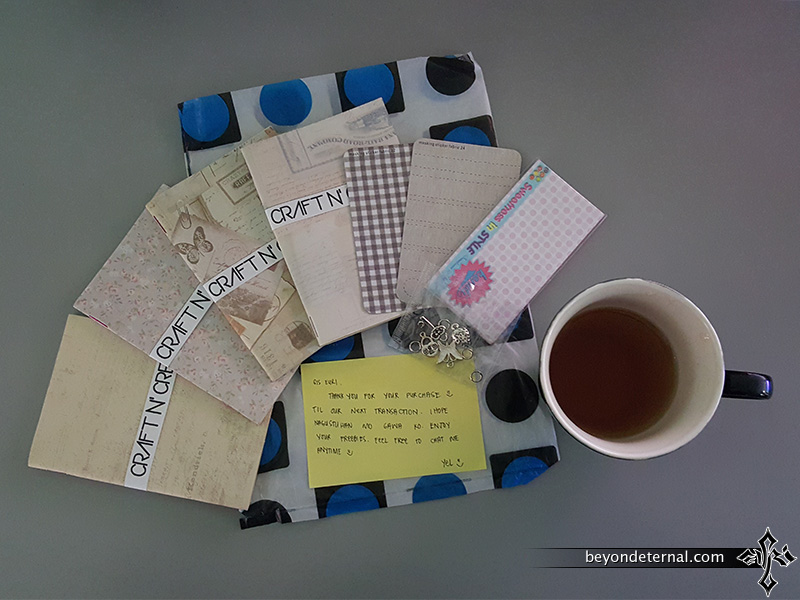 CRAFT N'
CRAFT N'
CRAFT N'
CRAFT N' CRE
Sweetness in STYLE
SIS YURI,
THANK YOU FOR YOUR PURCHASE
TIL OUR NEXT TRANSACTION. I HOPE
NAGUSTUHAN MO GAWA KO. ENJOY
YOUR FREEBIES. FEEL FREE TO CHAT ME
ANYTIME.
YEL
beyondeternal.com